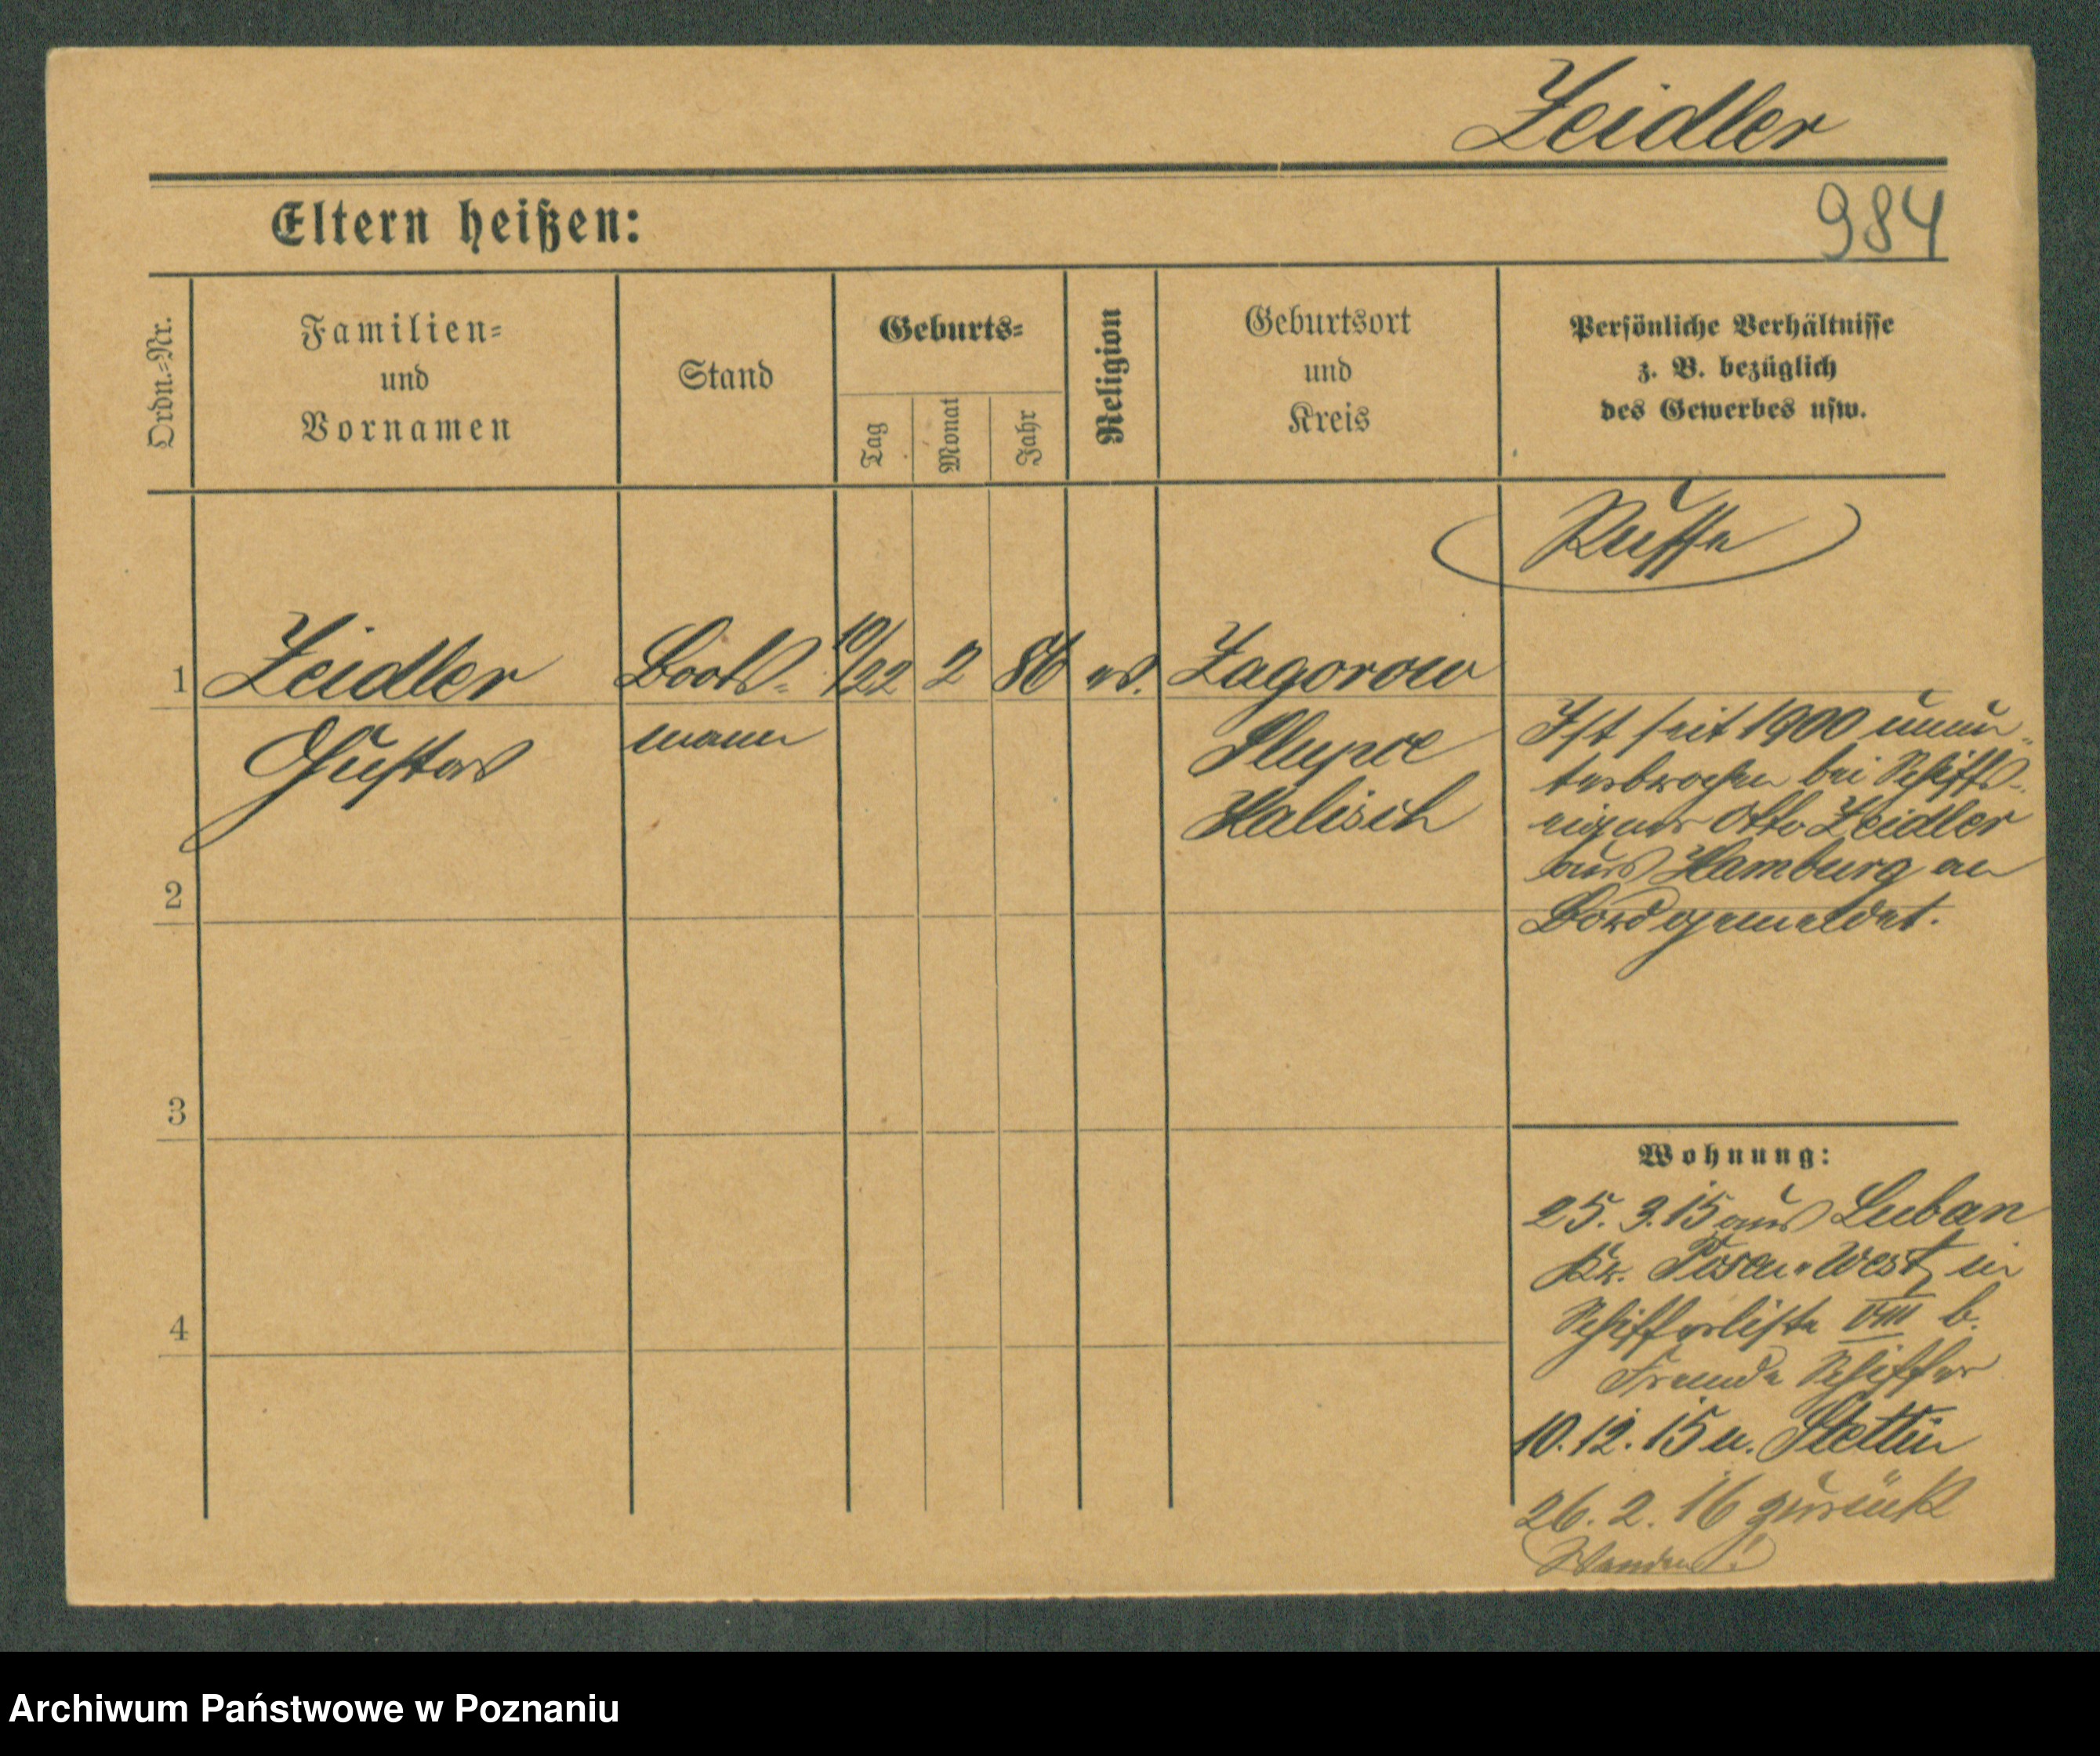 Zeidler
984
Eltern heißen:
Ordn.=Nr.
Familien=
und
Vornamen
Stand
Geburts=
Tag
Monat
Jahr
Religion
Geburtsort
und
Kreis
Persönliche Verhältnisse
z. B. bezüglich
des Gewerbes usw.
Russe
1
Zeidler
Gustav
Boots=
mann
10/22
2
86
ev.
Zagorow
Slupce
Kalisch
Ist seit 1900 unun=
terbrochen bei Schiffs=
eigner Otto Zeidler
aus Hamburg an
Bord gemeldet.
2
3
4
Wohnung:
25. 3. 15 aus Luban
Kr. Posen=West in
Schifferliste VIII b.
Fremde Schiffer
10. 12. 15 n. Stettin
26. 2. 16 zurück
Wenden!
Archiwum Państwowe w Poznaniu